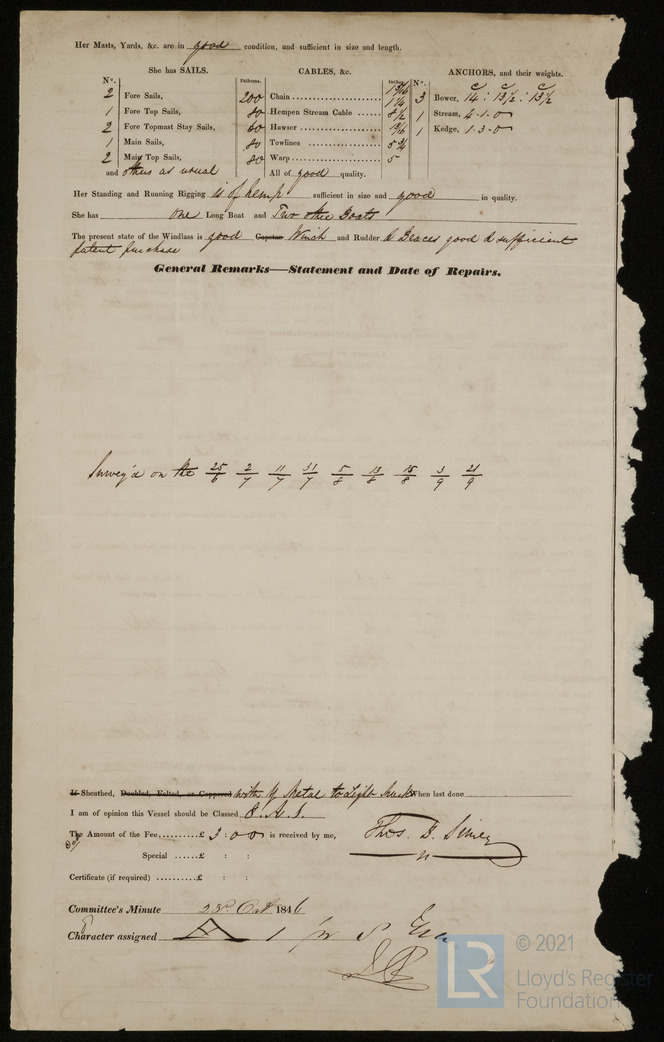 Her Masts, Yards, &c. are in good condition, and sufficient in size and length.
She has SAILS. CABLES, &c. ANCHORS, and their weights.
No. Fathoms. Inches. No.
2 Fore Sails, 200 Chain 1 3/16 3 Bower, 14 : 13 1/2 : 13 1/2
1 Fore Top Sails, 80 Hempen Stream Cable 8 1/2 1 Stream, 4-1-0
2 Fore Topmast Stay Sails, 60 Hawser 1 Kedge, 1-3-0
1 Main Sails, 80 Towlines 5 3/4
2 Main Top Sails, 80 Warp 5
and others as usual All of good quality.
Her Standing and Running Rigging is of hemp sufficient in size and good in quality.
She has one Long Boat and Two other Boats
The present state of the Windlass is good Capstan Winch and Rudder & Braces good & sufficient
patent purchase
General Remarks—Statement and Date of Repairs.
Survey'd on the 25/6 2/7 11/7 31/7 5/8 13/8 18/8 3/9 21/9
If Sheathed, Doubled, Felted, or Coppered with Y Metal to Light mark When last done
I am of opinion this Vessel should be Classed 8. A. 1.
The Amount of the Fee £ 3 : 0 0 is received by me, Thos. B. Simey
Special £ : :
Certificate (if required) £ : :
Committee's Minute 23rd Oct 1846
Character assigned A 1 for 8
© 2021
LR Lloyd's Register
Foundation